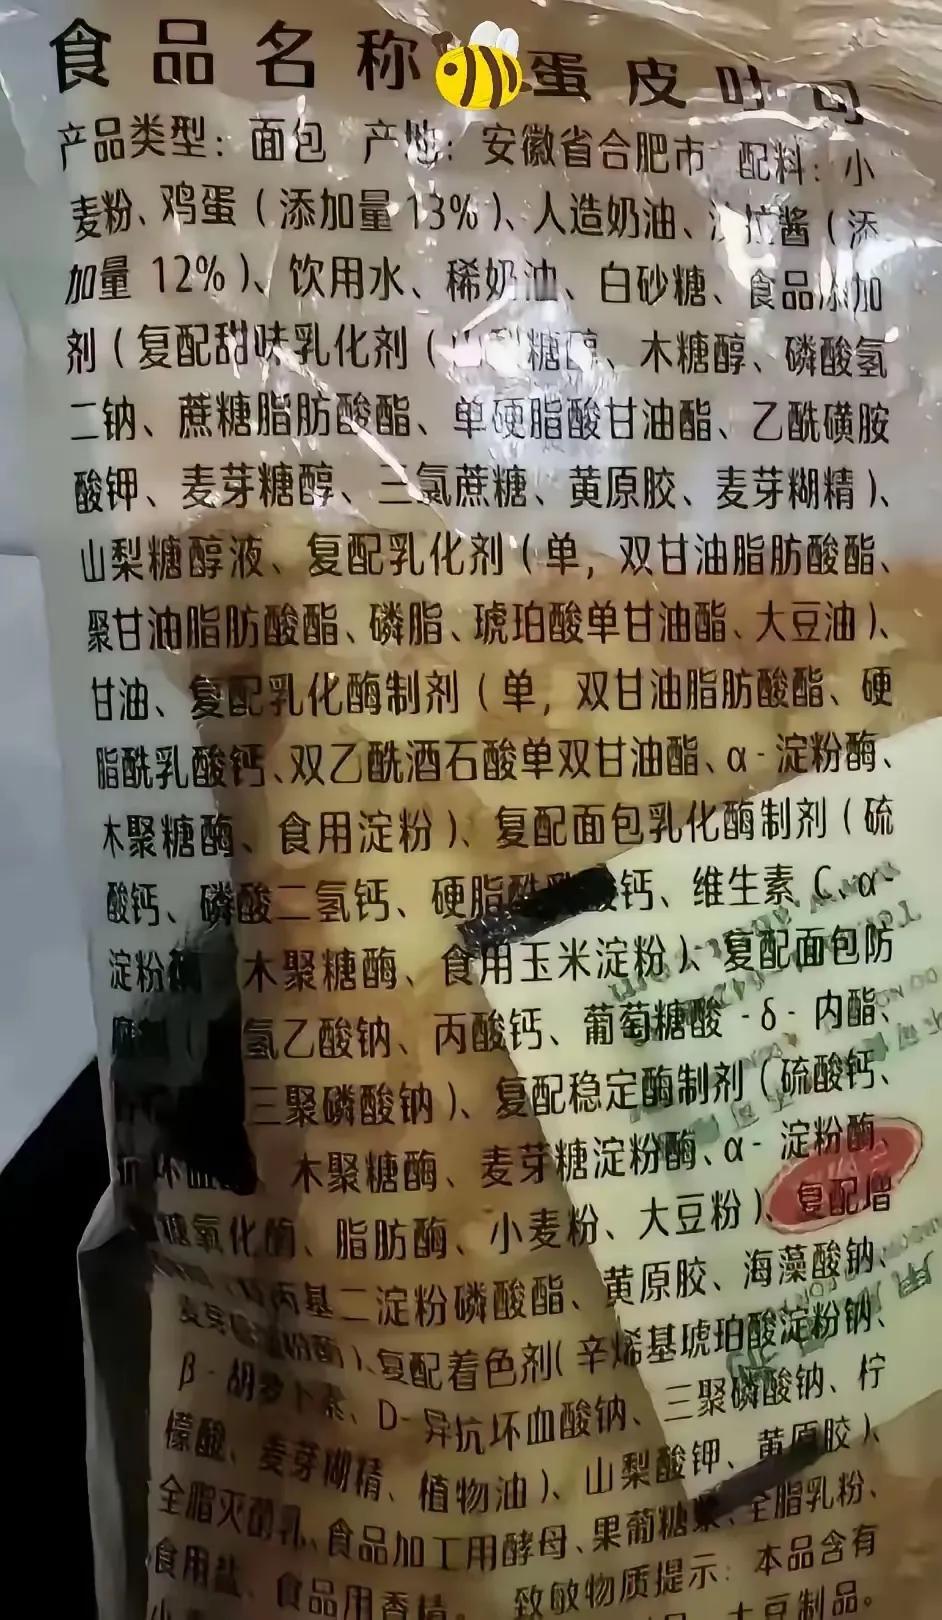 食品名称 蛋皮吐司
产品类型：面包 产地：安徽省合肥市 配料：小
麦粉、鸡蛋（添加量13%）、人造奶油、沙拉酱（添
加量 12%）、饮用水、稀奶油、白砂糖、食品添加
剂（复配甜味乳化剂（山梨糖醇、木糖醇、磷酸氢
二钠、蔗糖脂肪酸酯、单硬脂酸甘油酯、乙酰磺胺
酸钾、麦芽糖醇、三氯蔗糖、黄原胶、麦芽糊精）、
山梨糖醇液、复配乳化剂（单，双甘油脂肪酸酯、
聚甘油脂肪酸酯、磷脂、琥珀酸单甘油酯、大豆油）、
甘油、复配乳化酶制剂（单，双甘油脂肪酸酯、硬
脂酰乳酸钙、双乙酰酒石酸单双甘油酯、α-淀粉酶、
木聚糖酶、食用淀粉）、复配面包乳化酶制剂（硫
酸钙、磷酸二氢钙、硬脂酰乳酸钙、维生素 C、α-
淀粉酶、木聚糖酶、食用玉米淀粉）、复配面包防
氢乙酸钠、丙酸钙、葡萄糖酸-δ-内酯、
三聚磷酸钠）、复配稳定酶制剂（硫酸钙、
抗坏血 木聚糖酶、麦芽糖淀粉酶、α-淀粉酶、
糖氧化酶、脂肪酶、小麦粉、大豆粉）、复配增
丙基二淀粉磷酸酯、黄原胶、海藻酸钠、
麦芽糖淀粉酶）、复配着色剂（辛烯基琥珀酸淀粉钠、
β-胡萝卜素、D-异抗坏血酸钠、三聚磷酸钠、柠
檬酸、麦芽糊精、植物油）、山梨酸钾、黄原胶）、
全脂灭菌乳、食品加工用酵母、果葡糖浆、全脂乳粉、
食用盐、食品用香精。 致敏物质提示：本品含有
大豆制品。